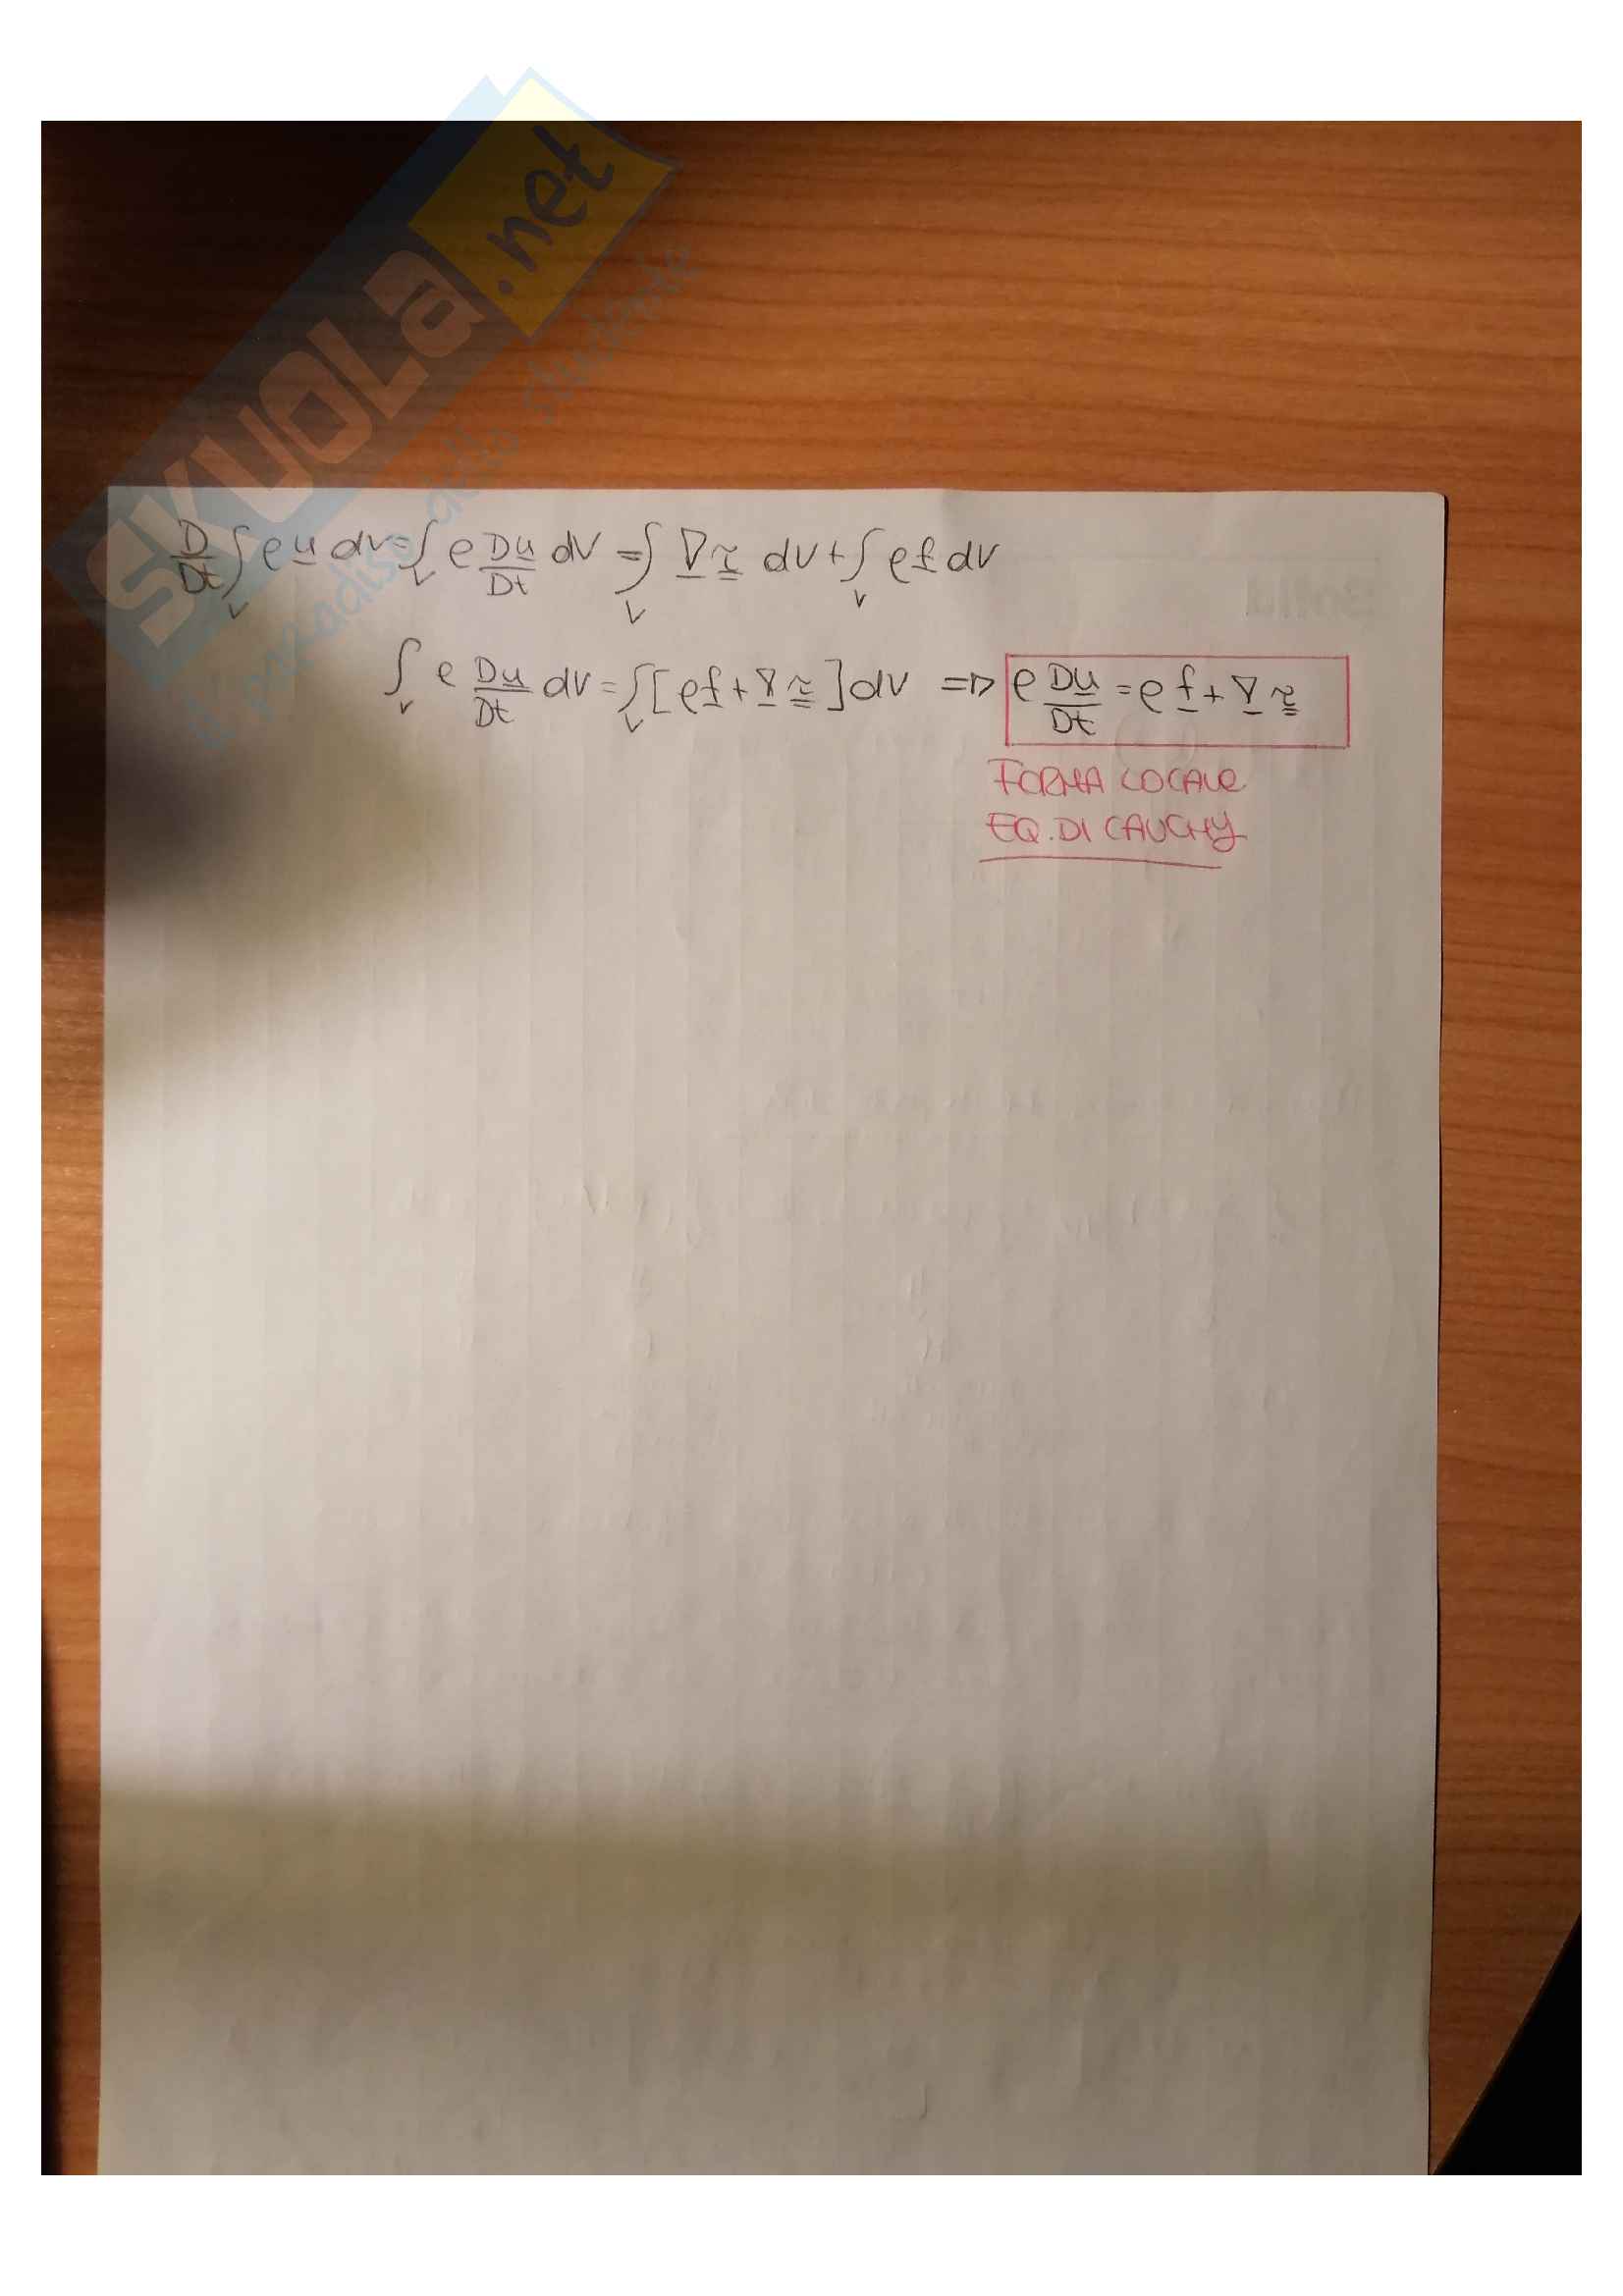 SKUOLA.net
il paradiso dello studente
D/Dt ∫_V ρ u dV = ∫_V ρ Du/Dt dV = ∫_V ∇ τ dV + ∫_V ρ f dV
∫_V ρ Du/Dt dV = ∫_V [ρ f + ∇ τ] dV ⇒ ρ Du/Dt = ρ f + ∇ τ
FORMA LOCALE
EQ. DI CAUCHY